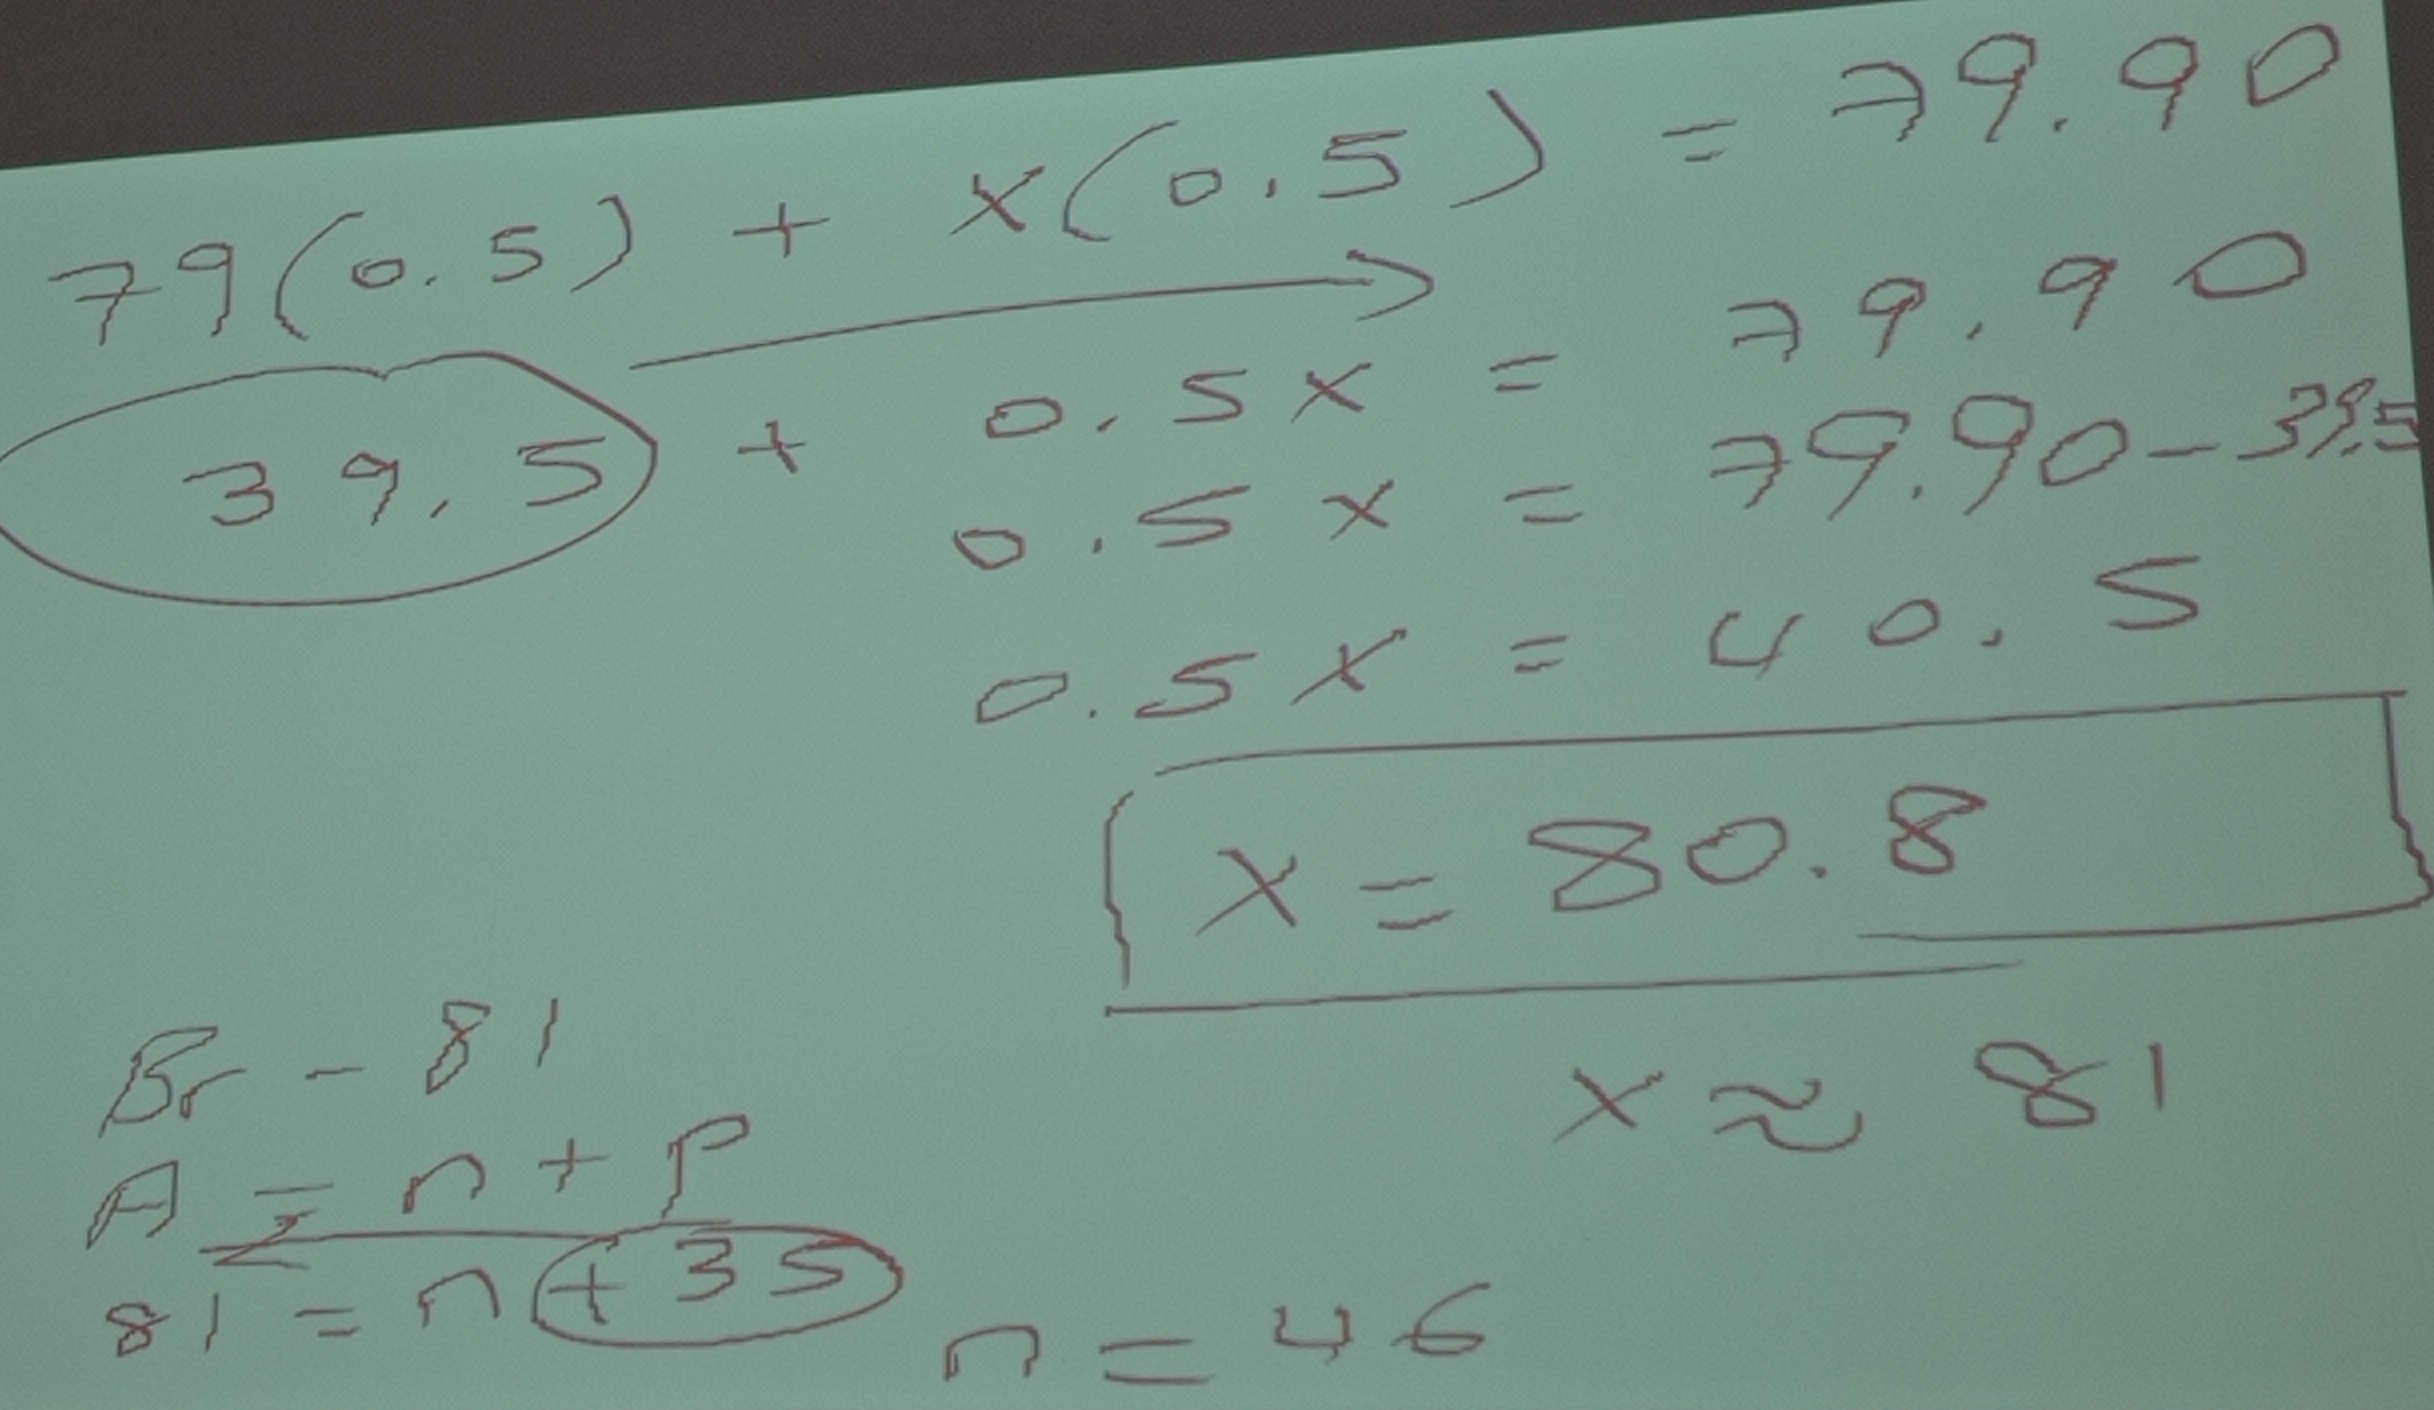 79(0.5) + x(0.5) = 79.90
39.5 + 0.5x = 79.90
0.5x = 79.90 - 39.5
0.5x = 40.5
x = 80.8
x ≈ 81
Br - 81
A = n + p
81 = n + 35
n = 46